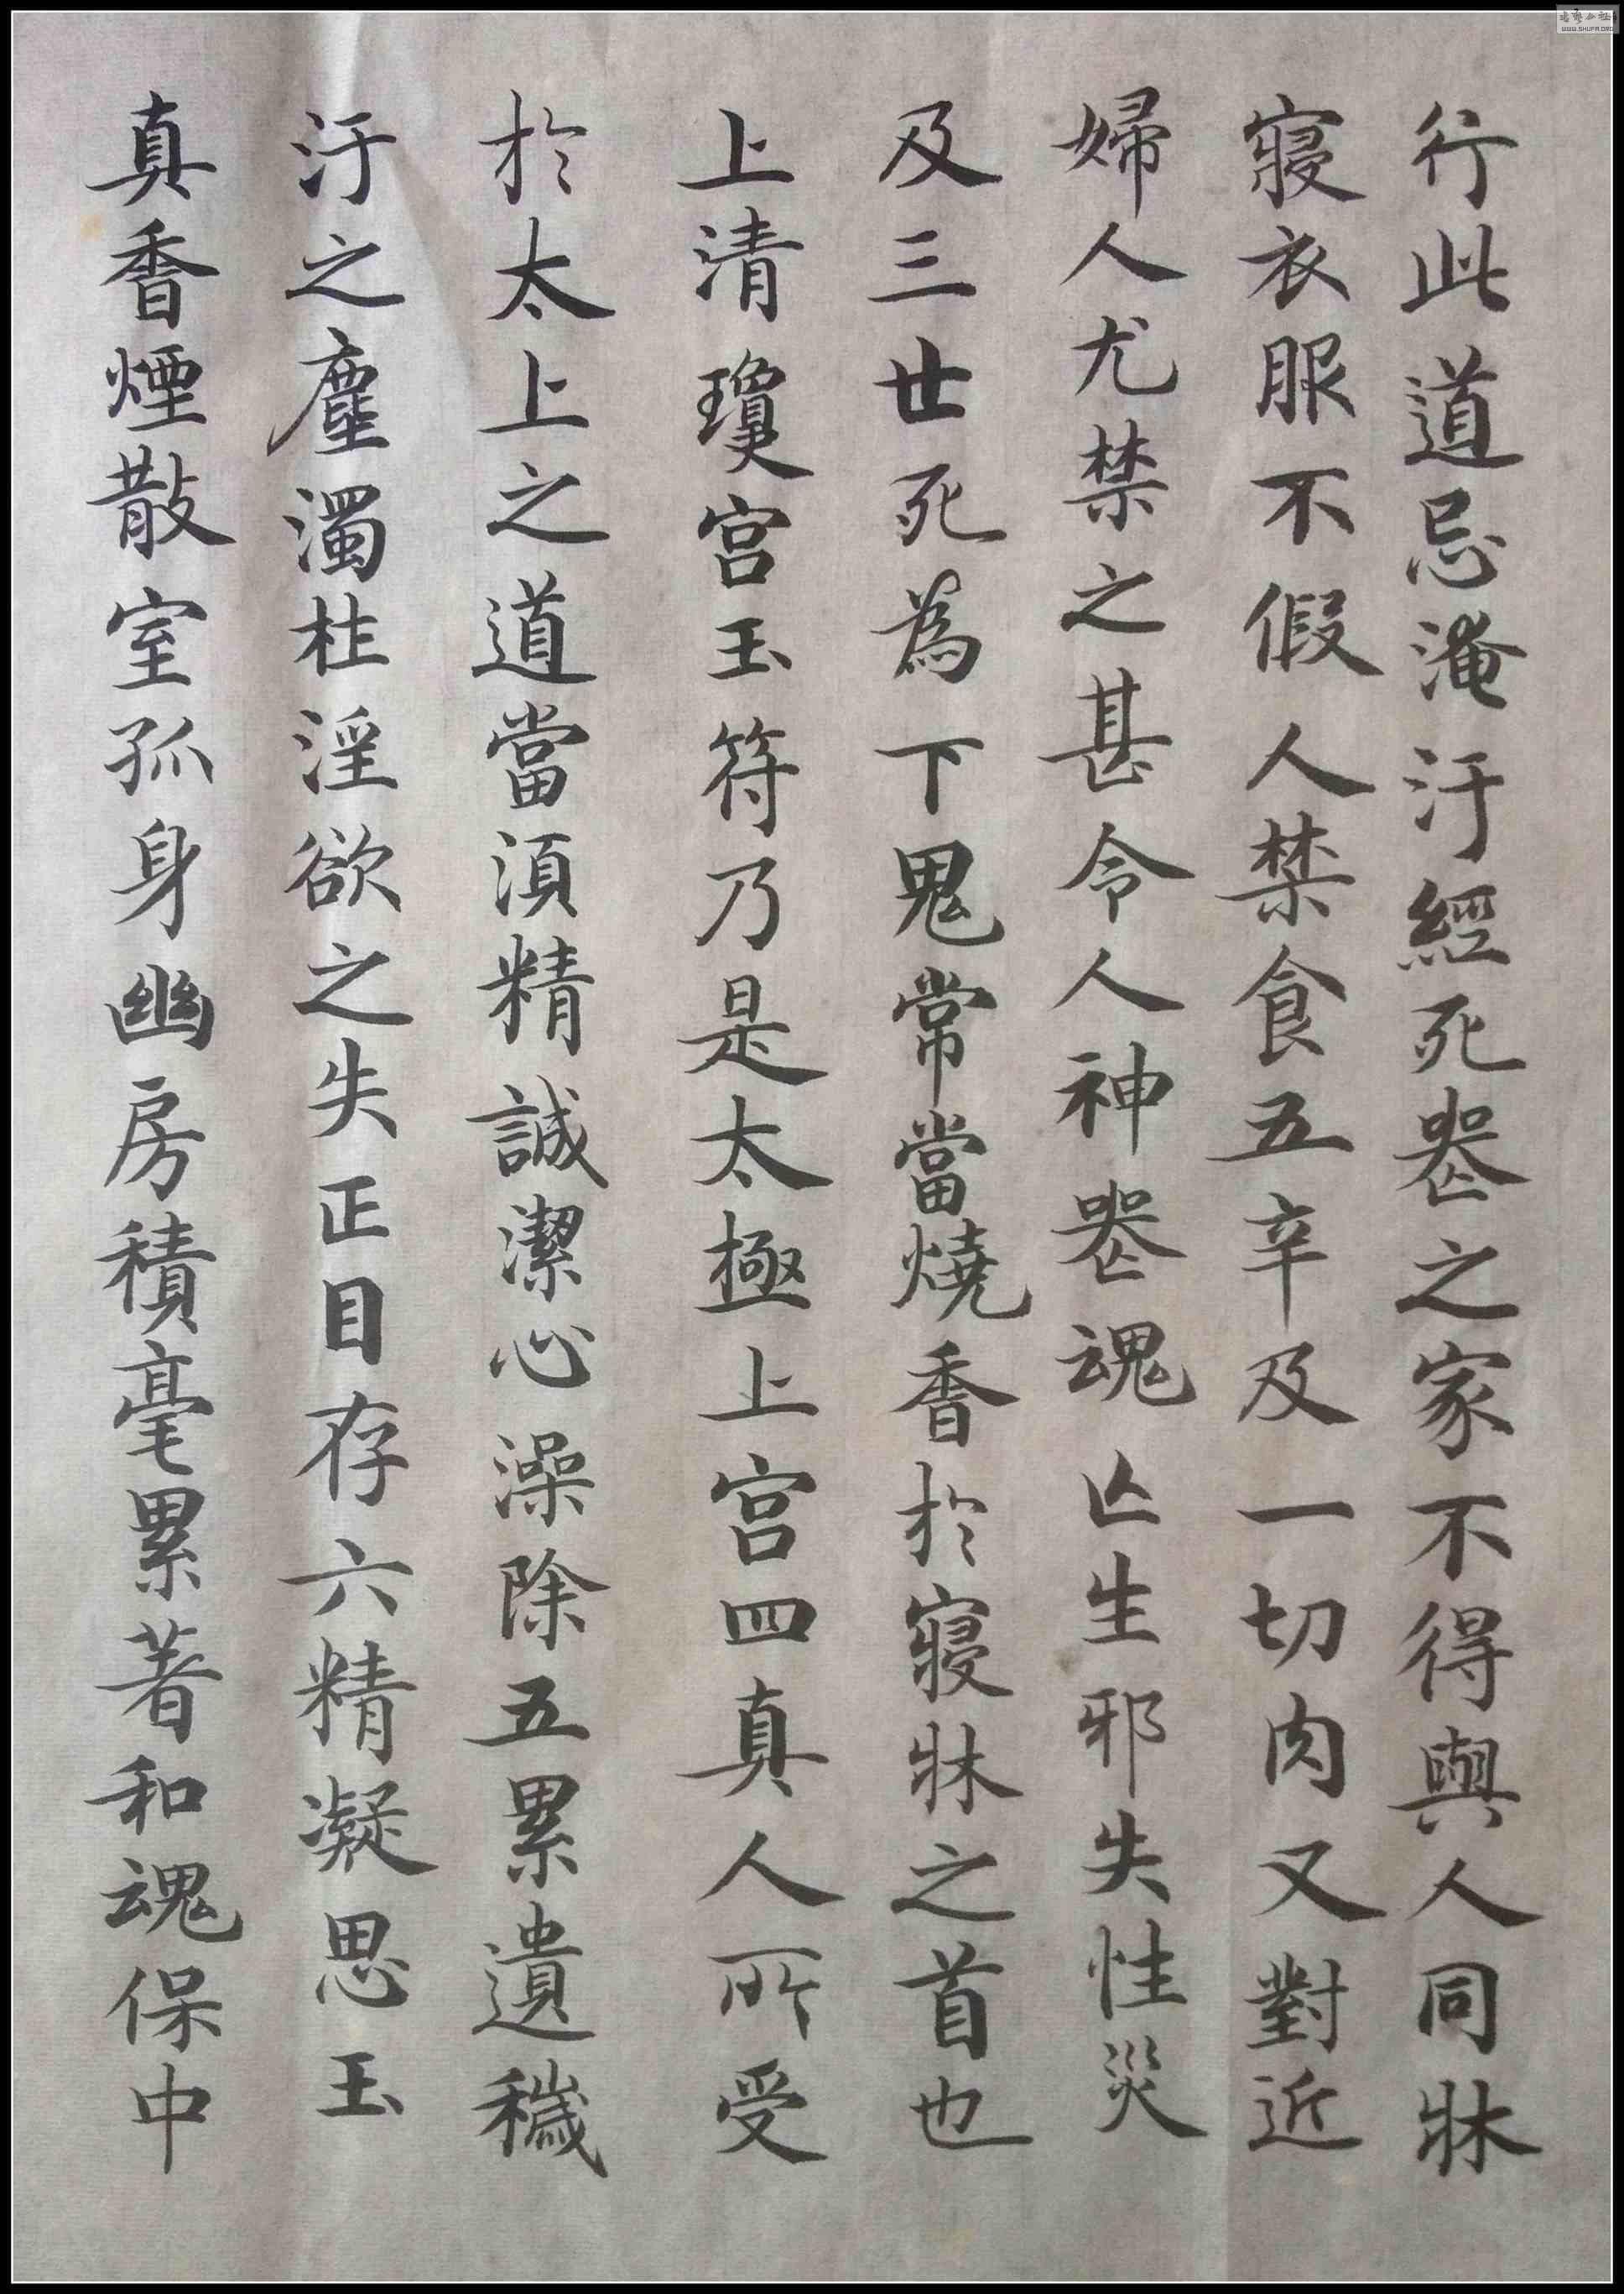 行此道忌淹汙經死喪之家不得與人同牀
寢衣服不假人禁食五辛及一切肉又對近
婦人尤禁之甚令人神喪魂亡生邪失性災
及三世死為下鬼常當燒香於寢牀之首也
上清瓊宮玉符乃是太極上宮四真人所受
於太上之道當須精誠潔心澡除五累遺穢
汙之塵濁杜淫欲之失正目存六精凝思玉
真香煙散室孤身幽房積毫累著和魂保中
WWW.SHUFA.ORG